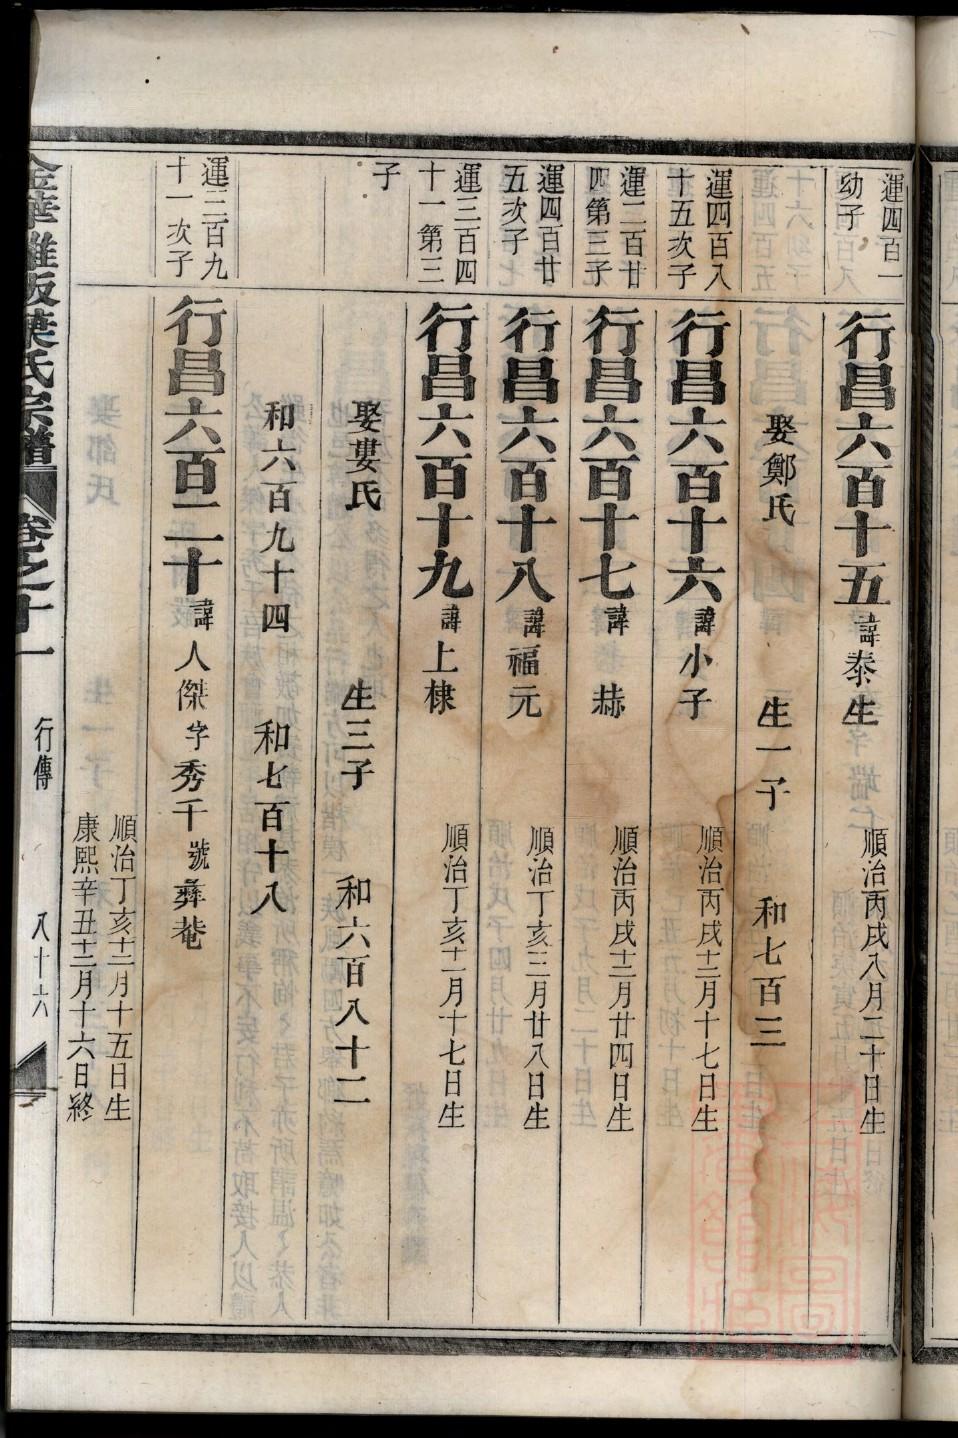 運四百一
幼子
行昌六百十五 諱泰生 順治丙戌八月二十日生
娶鄭氏 生一子 和七百三
運四百八
十五次子
行昌六百十六 諱小子 順治丙戌十二月十七日生
運二百廿
四第三子
行昌六百十七 諱 赫 順治丙戌十二月廿四日生
運四百廿
五次子
行昌六百十八 諱福元 順治丁亥三月廿八日生
運三百四
十一第三
子
行昌六百十九 諱上棣 順治丁亥十一月十七日生
娶婁氏 生三子 和六百八十二
和六百九十四 和七百十八
運三百九
十一次子
行昌六百二十 諱人傑字秀千號彝菴
順治丁亥十二月十五日生
康熙辛丑十二月十六日終
葉氏宗譜 卷之十一 行傳 八十六